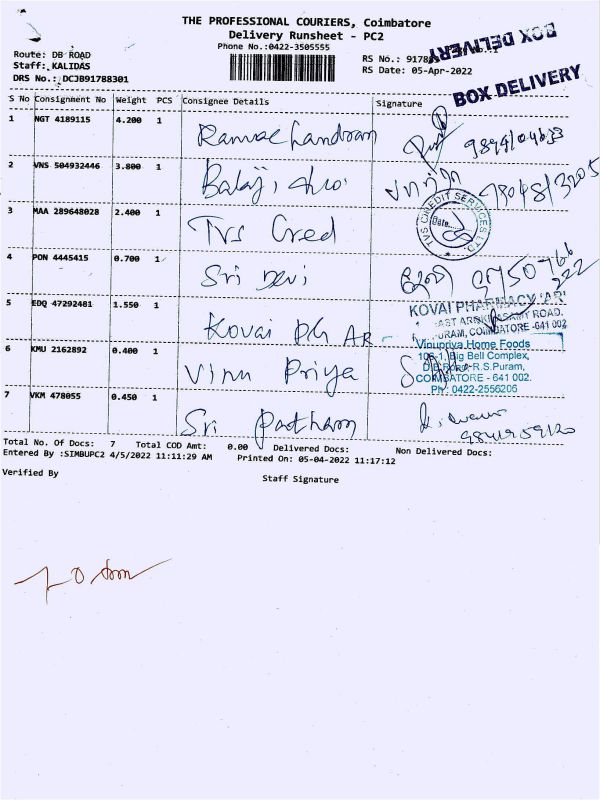 THE PROFESSIONAL COURIERS, Coimbatore
Delivery Runsheet - PC2
Phone No.:0422-3505555
BOX DELIVERY
Route: DB ROAD
Staff: KALIDAS
DRS No.: DCJB91788301
RS No.: 9178
RS Date: 05-Apr-2022
BOX DELIVERY
S No Consignment No Weight PCS Consignee Details Signature
1 NGT 4189115 4.200 1 Ramachandran
2 VNS 504932446 3.800 1 Balaji
3 MAA 289648028 2.400 1 Tvs Cred
TVS CREDIT SERVICES LTD.
Date
4 PON 4445415 0.700 1 Sri Devi
9750766
222
5 EDQ 47292481 1.550 1 Kovai PH AR
KOVAI PHARMACY 'AR'
ROAD.
PURAM, COIMBATORE -641 002
6 KMU 2162892 0.400 1 Vinu Priya
Vinupriya Home Foods
106-1, Big Bell Complex,
D.B.Road, R.S.Puram,
COIMBATORE - 641 002.
Ph: 0422-2556206
7 VKM 478055 0.450 1 Sri Padham
Total No. Of Docs: 7 Total COD Amt: 0.00 Delivered Docs: Non Delivered Docs:
Entered By :SIMBUPC2 4/5/2022 11:11:29 AM Printed On: 05-04-2022 11:17:12
Verified By
Staff Signature